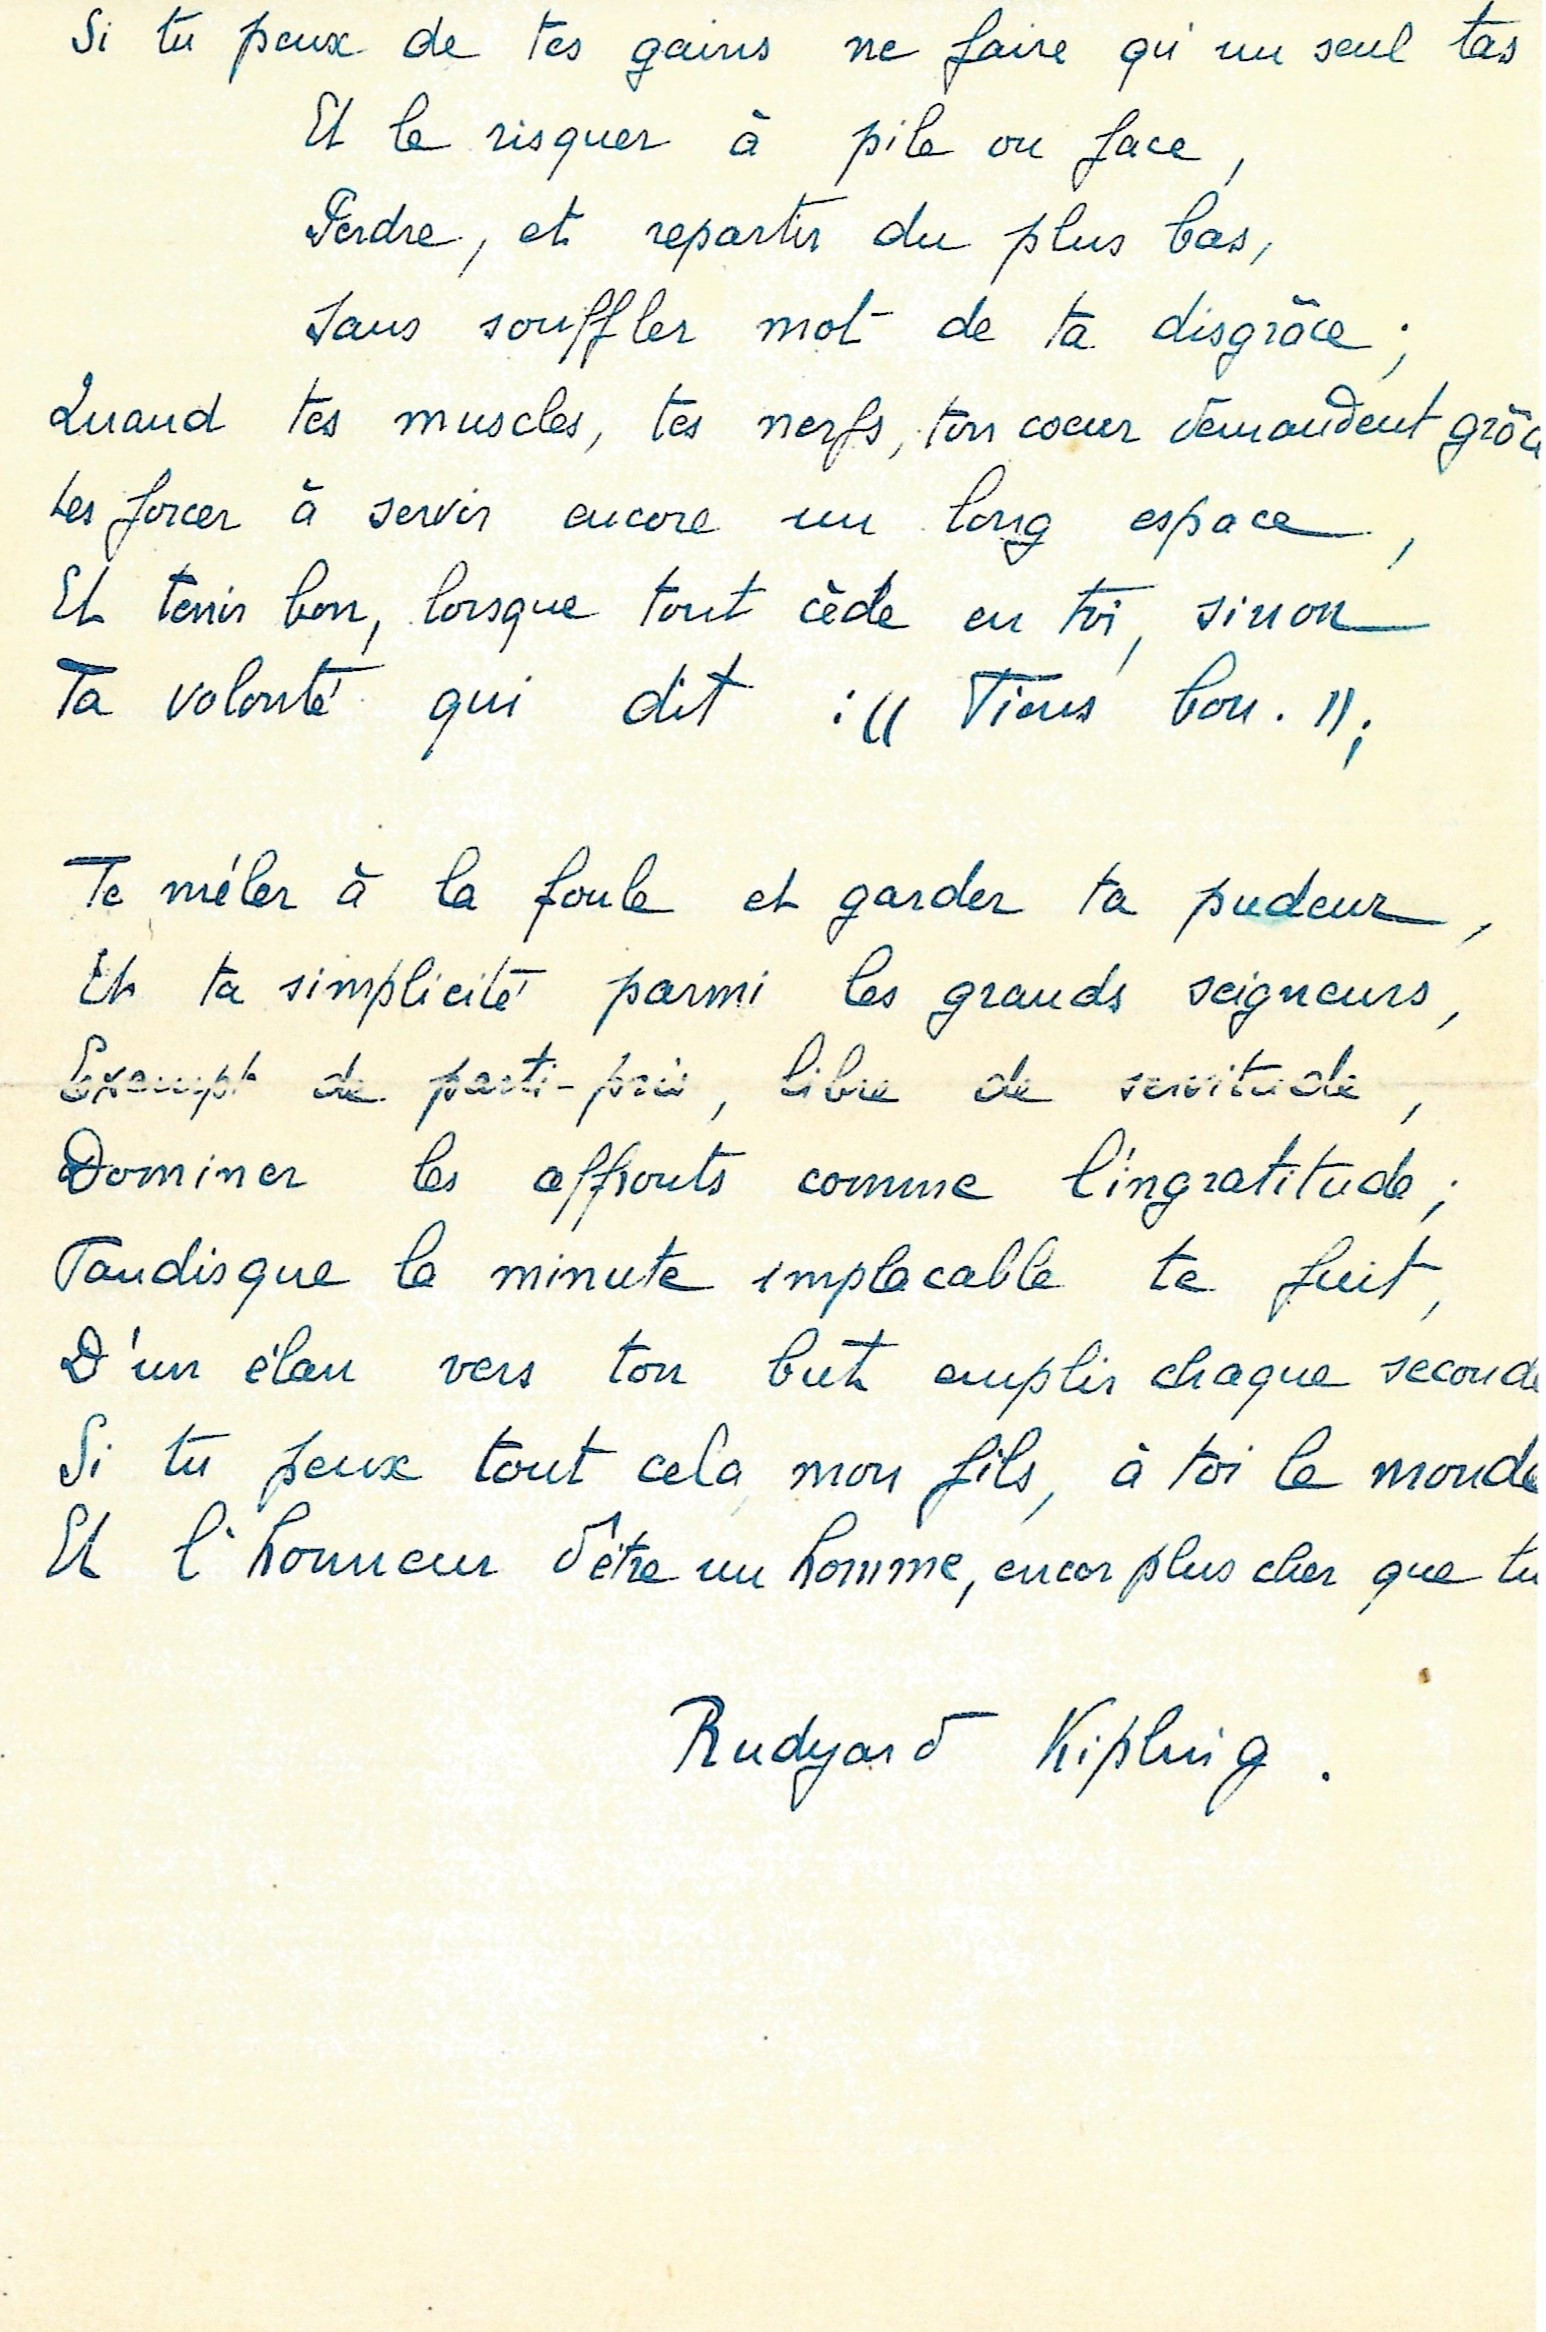 Si tu peux de tes gains ne faire qu'un seul tas
Et le risquer à pile ou face,
Perdre, et repartir du plus bas,
Sans souffler mot de ta disgrâce;
Quand tes muscles, tes nerfs, ton coeur demandent grâc
Les forcer à servir encore un long espace,
Et tenir bon, lorsque tout cède en toi, sinon
Ta volonté qui dit : (( Tiens bon. ));
Te mêler à la foule et garder ta pudeur,
Et ta simplicité parmi les grands seigneurs,
Exempt de parti-pris, libre de servitude,
Dominer les affronts comme l'ingratitude;
Tandisque la minute implacable te fuit,
D'un élan vers ton but emplir chaque seconde
Si tu peux tout cela, mon fils, à toi le monde
Et l'honneur d'être un homme, encor plus cher que lu
Rudyard Kipling.